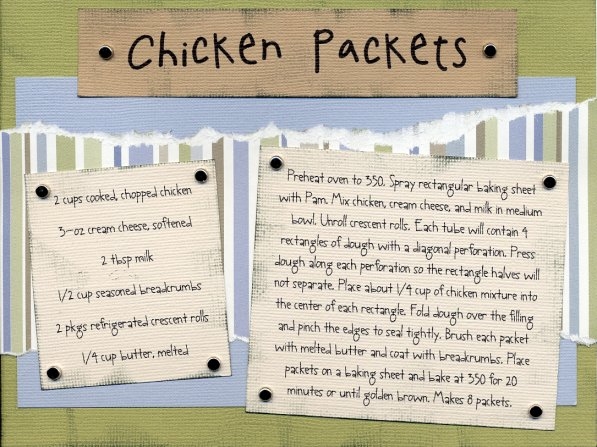 Chicken Packets
2 cups cooked, chopped chicken
3-oz cream cheese, softened
2 tbsp milk
1/2 cup seasoned breadcrumbs
2 pkgs refrigerated crescent rolls
1/4 cup butter, melted
Preheat oven to 350. Spray rectangular baking sheet
with Pam. Mix chicken, cream cheese, and milk in medium
bowl. Unroll crescent rolls. Each tube will contain 4
rectangles of dough with a diagonal perforation. Press
dough along each perforation so the rectangle halves will
not separate. Place about 1/4 cup of chicken mixture into
the center of each rectangle. Fold dough over the filling
and pinch the edges to seal tightly. Brush each packet
with melted butter and coat with breadcrumbs. Place
packets on a baking sheet and bake at 350 for 20
minutes or until golden brown. Makes 8 packets.